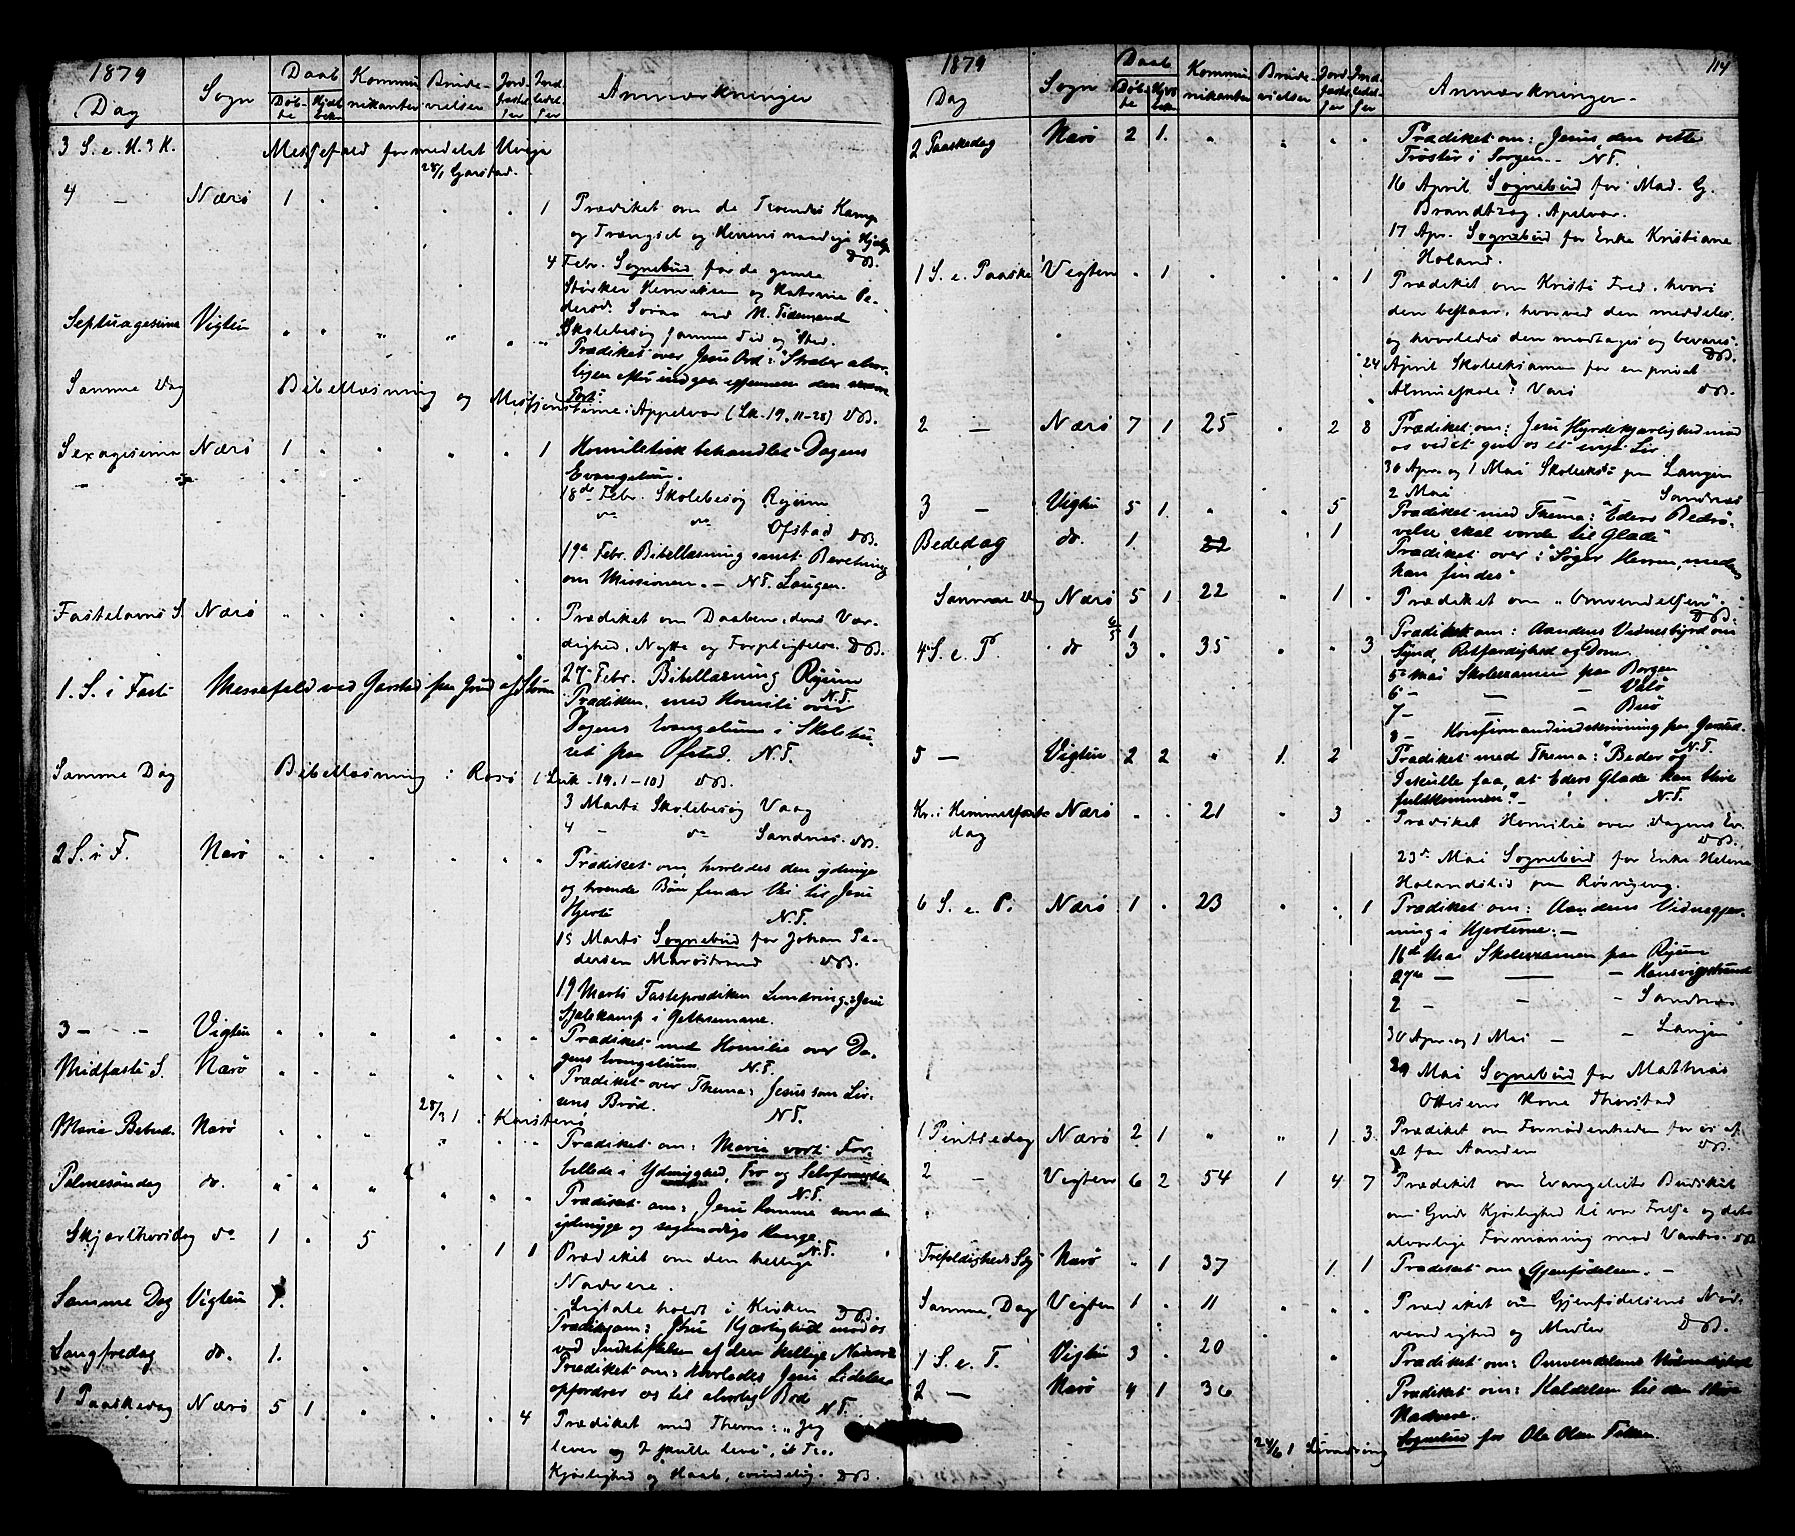 1879
Dag
Sogn
Daab
Døbte
Hjdøbte
Kommunikanter
Brudevielser
Jordfæstelser
Indledelser
Anmærkninger
3 S. e. H. 3 K. Messefald formedelst Uveir
28/1 Garstad.
4 — Nærø 1 " " " " 1 Prædiket om de Troendes Kamp
og Trængsel og Herrens naadige Hjælp
DB.
4 Febr. Sognebud for de gamle
Henriksen og Pe-
dersd. Soraa ved N. Tidemand
Septuagesima Vigten " " " " " " Skolebesøg samme Tid og Sted.
Prædiket over Jesu Ord: "Stræber alvor-
ligen efter indgaa gjennem den snevre
Port".
Samme Dag Bibellæsning og Missionstime i Appelvær (Luk. 19, 11-28) DB.
Sexagesima Nærø 1 " " " " 1 Homiletisk behandlet Dagens
Evangelium.
18de Febr. Skolebesøg Rejem
do do Ofstad DB.
19de Febr. Bibellæsning samt Beretning
om Missionen. — N.T. Langen.
Fastelavns S. Nærø " " " " " " Prædiket om Daaben, dens Vær-
dighed, Nytte og Forpligtelse. DB.
27 Febr. Bibellæsning Rejem
N.T.
1. S. i Fast. Messefald ved Garstad paa Grund af Storm
Prædiken med Homili over
Dagens Evangelium i Skolehu-
set paa Ofstad. N.T.
Samme Dag Bibellæsning i Rosø (Luk. 19. 1-10) DB.
3 Marts Skolebesøg Vaag
4 — do Sandnes. DB.
2 S. i F. Nærø " " " " " " Prædiket om, hvorledes den ydmyge
og troende Bøn finder Vei til Jesu
Hjerte N.T.
15 Marts Sognebud for Johan Pe-
dersen Marøstrand DB.
19 Marts Fasteprædiken Lundring: Jesu
Sjælekamp i Gethsemane.
3 — — Vigten " " " " " " Prædiket med Homilie over Da-
gens Evangelium N.T.
Midfaste S. Nærø " " " " " " Prædiket over Thema: Jesus som Liv-
sens Brød. N.T.
28/3 1. Karstenø
Maria Bebud. Nærø " " " " " " Prædiket om: Maria vort For-
billede i Ydmyghed, Tro og Selvfornægtelse
N.T.
Palmesøndag do. " " " " " " Prædiket om: Jesu Komme som den
ydmyge og sagtmodige Konge.
N.T.
Skjærthorsdag do 1 " 5 " 1 1 Prædiket om den hellige
Nadvere.
Ligtale holdt i Kirken DB.
Samme Dag Vigten 1. Prædik. om: Jesu Kjærlighed mod os
ved Indstiftelsen af den hellige Nadvere
Langfredag do. 1. Prædiket om: Hvorledes Jesu Lidelse
opfordrer os til alvorlig Bod
N.T.
1 Paaskedag Nærø 5 1 " " " 4 Prædiket med Thema: "Jeg
lever og I skulle leve", i Tro,
Kjærlighed og Haab, evindelig. DB.
1879
114
Dag
Sogn
Daab
Døbte
Hjdøbte
Kommunikanter
Brudevielser
Jordfæstelser
Indledelser
Anmærkninger.
2 Paaskedag Nærø 2 1. " " " " Prædiket om: Jesus, den rette
Trøster i Sorgen. — N.T.
16 April Sognebud for Mad. G.
Brandtzæg. Apelvær.
17 Apr. Sognebud for Enke Kristiane
Holand.
1 S. e. Paaske Vigten " 1 " " " 1 Prædiket om Kristi Fred, hvori
den bestaar, hvorved den meddeles,
og hvorledes den modtages og bevares.
DB.
24 April Skoleexamen for en privat
Almueskole i Varø DB.
2 — Nærø 7 1 25 " 2 8 Prædiket om: Jesu Hyrdekjærlighed mod
os ved at give os et evigt Liv
30 Apr. og 1 Mai Skoleeks. paa Langen
2 Mai — Sandnæs
3 — Vigten 5 1. " " 5 Prædiket med Thema: "Eders Bedrø-
velse skal vorde til Glæde"
Bededag do. 1. 22 1 Prædiket over: "Søger Herren, medens
han findes"
Samme Dag Nærø 5 1 22 " 1 " Prædiket om "Omvendelsen".
DB.
6/5 1
4 S. e. P. do 3 " 35 " " 3 Prædiket om: Aandens Vidnesbyrd om
Synd, Retfærdighed og Dom.
5te Mai Skoleexamen paa Borgen
6 — — — Valø
7 — — — Burø
8 — Konfirmandindskrivning paa Garstad.
N.T.
5 — Vigten 2 2 " 1. 2 Prædiket med Thema: "Beder og
I skulle faa, at Eders Glæde kan blive
fuldkommen". — N.T.
Kr. Himmelfarts-
dag Nærø " " 21 " 3 " Prædiket Homilie over Dagens Ev.
DB.
23de Mai Sognebud for Enke Helena
Holandseid paa Rørvigeng.
6 S. e. P. Nærø 1 " 23 " " 1 Prædiket om: Aandens Vidnegjer-
ning i Hjerterne. —
16de Mai Skoleexamen paa Rejem
27de — — — Hansvigstrand
2 — — — Sandnæs
30 Apr. og 1 Mai — — Langen
29 Mai Sognebud for Mathias
Ottesens Kone Thorstad
1 Pintsedag Nærø 2 1 " " 1 3. Prædiket om Fornødenheden for os af
at faa Aanden DB.
2 — Vigten 6 2 54 1 4 7 Prædiket om Evangeliets Budskab
om Guds Kjærlighed til vor Frelse og dets
alvorlige Formaning mod Vantro. DB
Trefoldigheds Sdg Nærø " 1 37 1. 1 Prædiket om Gjenfødelsen. —
Samme Dag Vigten 1 " 11 " " " Prædiket om Gjenfødelsens Nød-
vendighed og Midler DB.
1 S. e. T. Vigten 3 " 20 " Prædiket om: Omvendelsens Nødvendighed
2 — Nærø 4 1 36 " Prædiket om: Kaldelsen til den store
Nadvere.
24/6 1 Lundring Sognebud for Ole Olsen